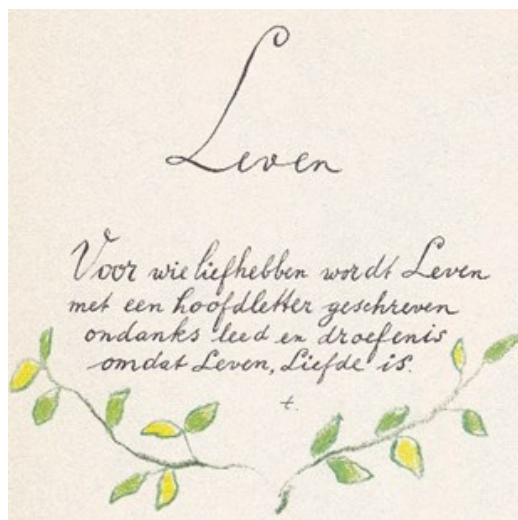 Leven
Voor wie liefhebben wordt Leven
met een hoofdletter geschreven
ondanks leed en droefenis
omdat Leven, Liefde is.
t.